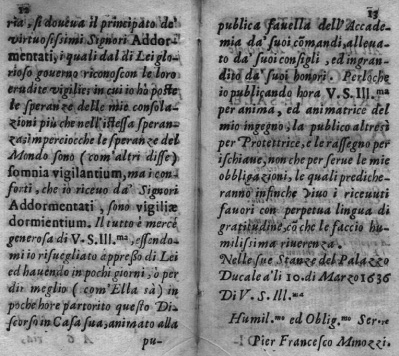 12
ria, si doueua il principato de'
virtuosissimi Signori Addor-
mentati, i quali dal di Lei glo-
rioso gouerno riconoscon le loro
erudite vigilie; in cui io hò poste
le speranze delle mie consola-
zioni più che nell'istessa speran-
za; imperciocche le speranze del
Mondo sono (com'altri disse)
somnia vigilantium, ma i con-
forti, che io riceuo da' Signori
Addormentati, sono vigiliæ
dormientium. Il tutto è mercè
generosa di V. S. Ill.ma, essendo-
mi io risuegliato appresso di Lei
ed hauendo in pochi giorni, ò per
dir meglio (com'Ella sà) in
poche hore partorito questo Di-
scorso in Casa sua, animato alla
pu-
13
publica fauella dell'Accade-
mia da' suoi cõmandi, alleua-
to da' suoi consigli, ed ingran-
dito da' suoi honori. Perloche
io publicando hora V. S. Ill.ma
per anima, ed animatrice del
mio ingegno, la publico altresì
per Protettrice, e le rassegno per
ischiaue, non che per serue le mie
obbligazioni, le quali prediche-
ranno infinche viuo i riceuuti
fauori con perpetua lingua di
gratitudine, cõ che le faccio hu-
milissima riuerenza.
Nelle sue Stanze del Palazzo
Ducale à li 10. di Marzo 1636
Di V. S. Ill.ma
Humil.mo ed Oblig.mo Ser.re
Pier Francesco Minozzi.